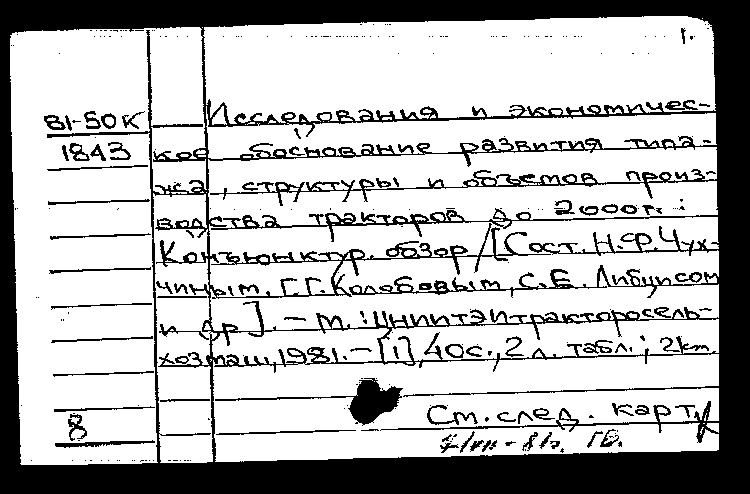 1.
81-50К Исследования и экономичес-
1843 кое обоснование развития типа-
жа, структуры и объемов произ-
водства тракторов до 2000 г. :
Конъюнктур. обзор / [Сост. Н.Ф. Чух-
чиным, Г.Г. Колобовым, С.Е. Либцисом
и др.]. – М. : ЦНИИТЭИтракторосель-
хозмаш, 1981. – [1], 40 с., 2 л. табл. ; 2
8 См. след. карт